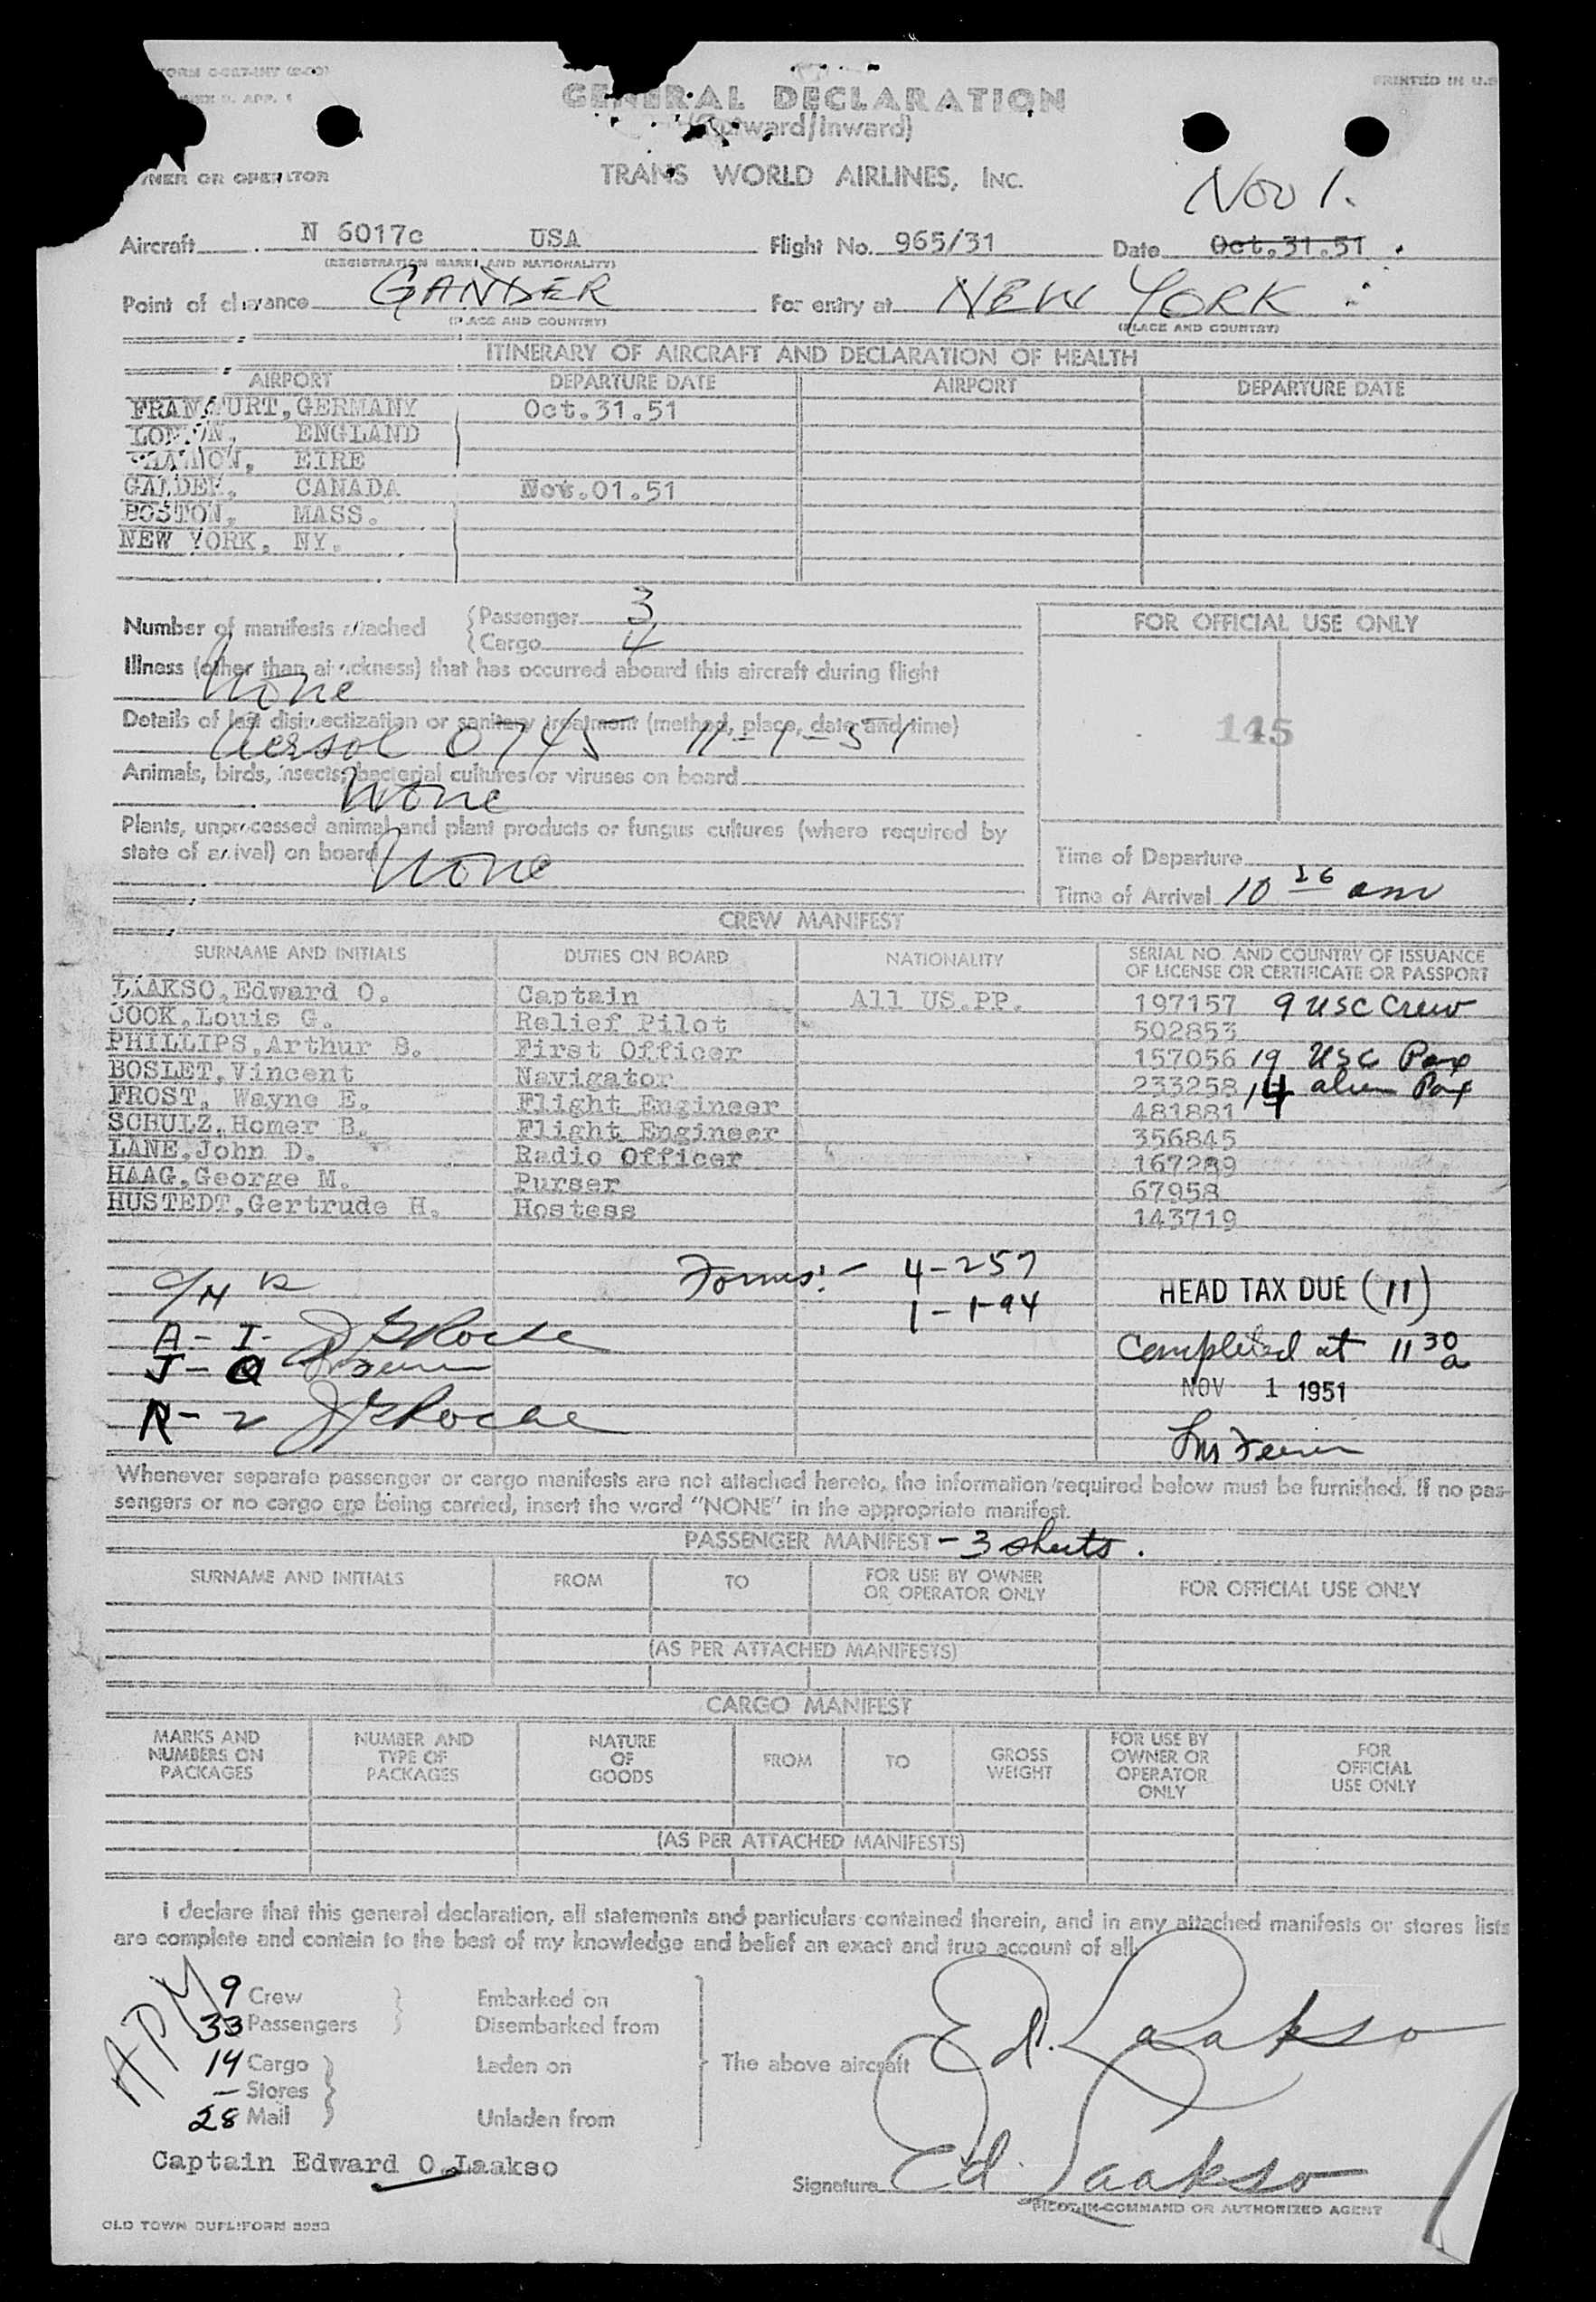 GENERAL DECLARATION
(Outward/Inward)
PRINTED IN U.S
OWNER OR OPERATOR
TRANS WORLD AIRLINES, INC.
Nov 1.
Aircraft N 6017c USA Flight No. 965/31 Date Oct.31.51
(REGISTRATION MARKS AND NATIONALITY)
Point of clearance GANDER For entry at NEW YORK
(PLACE AND COUNTRY) (PLACE AND COUNTRY)
ITINERARY OF AIRCRAFT AND DECLARATION OF HEALTH
AIRPORT DEPARTURE DATE AIRPORT DEPARTURE DATE
FRANKFURT, GERMANY Oct.31.51
LONDON, ENGLAND
SHANNON, EIRE
GANDER, CANADA Nov.01.51
BOSTON, MASS.
NEW YORK, NY.
Number of manifests attached Passenger 3
Cargo 4
FOR OFFICIAL USE ONLY
Illness (other than airsickness) that has occurred aboard this aircraft during flight
None
Details of last disinsectization or sanitary treatment (method, place, date and time)
Aersol 0745 11-1-51
145
Animals, birds, insects, bacterial cultures or viruses on board
None
Plants, unprocessed animal and plant products or fungus cultures (where required by
state of arrival) on board
None
Time of Departure
Time of Arrival 10 16 am
CREW MANIFEST
SURNAME AND INITIALS DUTIES ON BOARD NATIONALITY SERIAL NO. AND COUNTRY OF ISSUANCE
OF LICENSE OR CERTIFICATE OR PASSPORT
LAAKSO,Edward O. Captain All US.PP. 197157 9 USC Crew
COOK,Louis G. Relief Pilot 502853
PHILLIPS,Arthur B. First Officer 157056 19 USC Pax
BOSLET,Vincent Navigator 233258 14 alien Pax
FROST, Wayne E. Flight Engineer 481881
SCHULZ,Homer B. Flight Engineer 356845
LANE,John D. Radio Officer 167289
HAAG,George M. Purser 67958
HUSTEDT,Gertrude H. Hostess 143719
Forms:- 4-257
1-I-94
HEAD TAX DUE (11)
A - I - J G Roche
J - Q
Completed at 11 30 a
NOV 1 1951
R - Z J G Roche
Whenever separate passenger or cargo manifests are not attached hereto, the information required below must be furnished. If no pas-
sengers or no cargo are being carried, insert the word "NONE" in the appropriate manifest.
PASSENGER MANIFEST - 3 sheets.
SURNAME AND INITIALS FROM TO FOR USE BY OWNER
OR OPERATOR ONLY FOR OFFICIAL USE ONLY
(AS PER ATTACHED MANIFESTS)
CARGO MANIFEST
MARKS AND
NUMBERS ON
PACKAGES
NUMBER AND
TYPE OF
PACKAGES
NATURE
OF
GOODS
FROM
TO
GROSS
WEIGHT
FOR USE BY
OWNER OR
OPERATOR
ONLY
FOR
OFFICIAL
USE ONLY
(AS PER ATTACHED MANIFESTS)
I declare that this general declaration, all statements and particulars contained therein, and in any attached manifests or stores lists
are complete and contain to the best of my knowledge and belief an exact and true account of all
APM
9 Crew Embarked on
33 Passengers Disembarked from
14 Cargo Laden on The above aircraft Ed. Laakso
- Stores
28 Mail Unladen from
Captain Edward O.Laakso
Signature Ed. Laakso
PILOT-IN-COMMAND OR AUTHORIZED AGENT
OLD TOWN DUPLIFORM